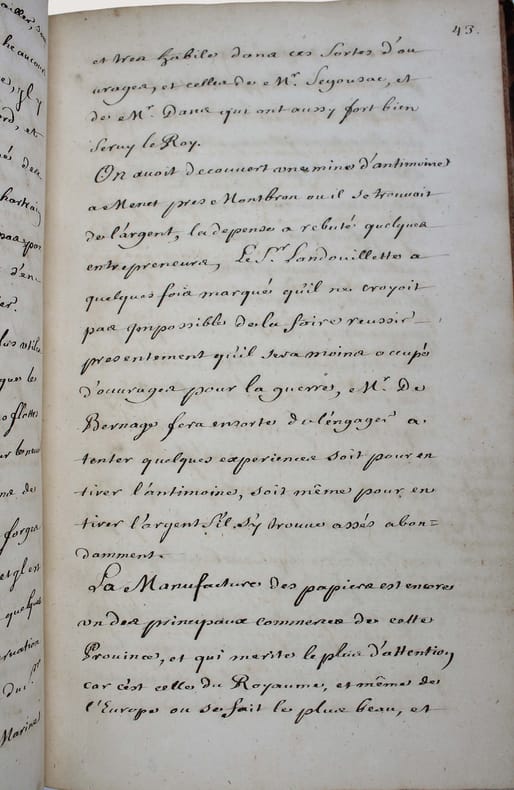 43.
et tres habile dans ces sortes d'ou
urages, et celles de Mr. Segousac, et
de Mr. Dans qui ont aussy fort bien
Seruy le Roy.
On auoit decouuert une mine d'antimoine
a Menet pres Montbron ou il se trouuoit
de l'argent, la depense a rebuté quelques
entrepreneurs, Le Sr. Landouillette a
quelques fois marqué qu'il ne croyoit
pas impossible de la faire reussir
presentement qu'il sera moins occupé
d'ouurages pour la guerre, Mr. De
Bernage fera ensorte de l'engager a
tenter quelques experiences soit pour en
tirer l'antimoine, soit même pour en
tirer l'argent s'il s'y trouue assés abon=
damment.
La Manufacture des papiers est encore
un des principaux commerces de cette
Prouince, et qui merite le plus d'attention
car c'est celle du Royaume, et même de
l'Europe ou se fait le plus beau, et